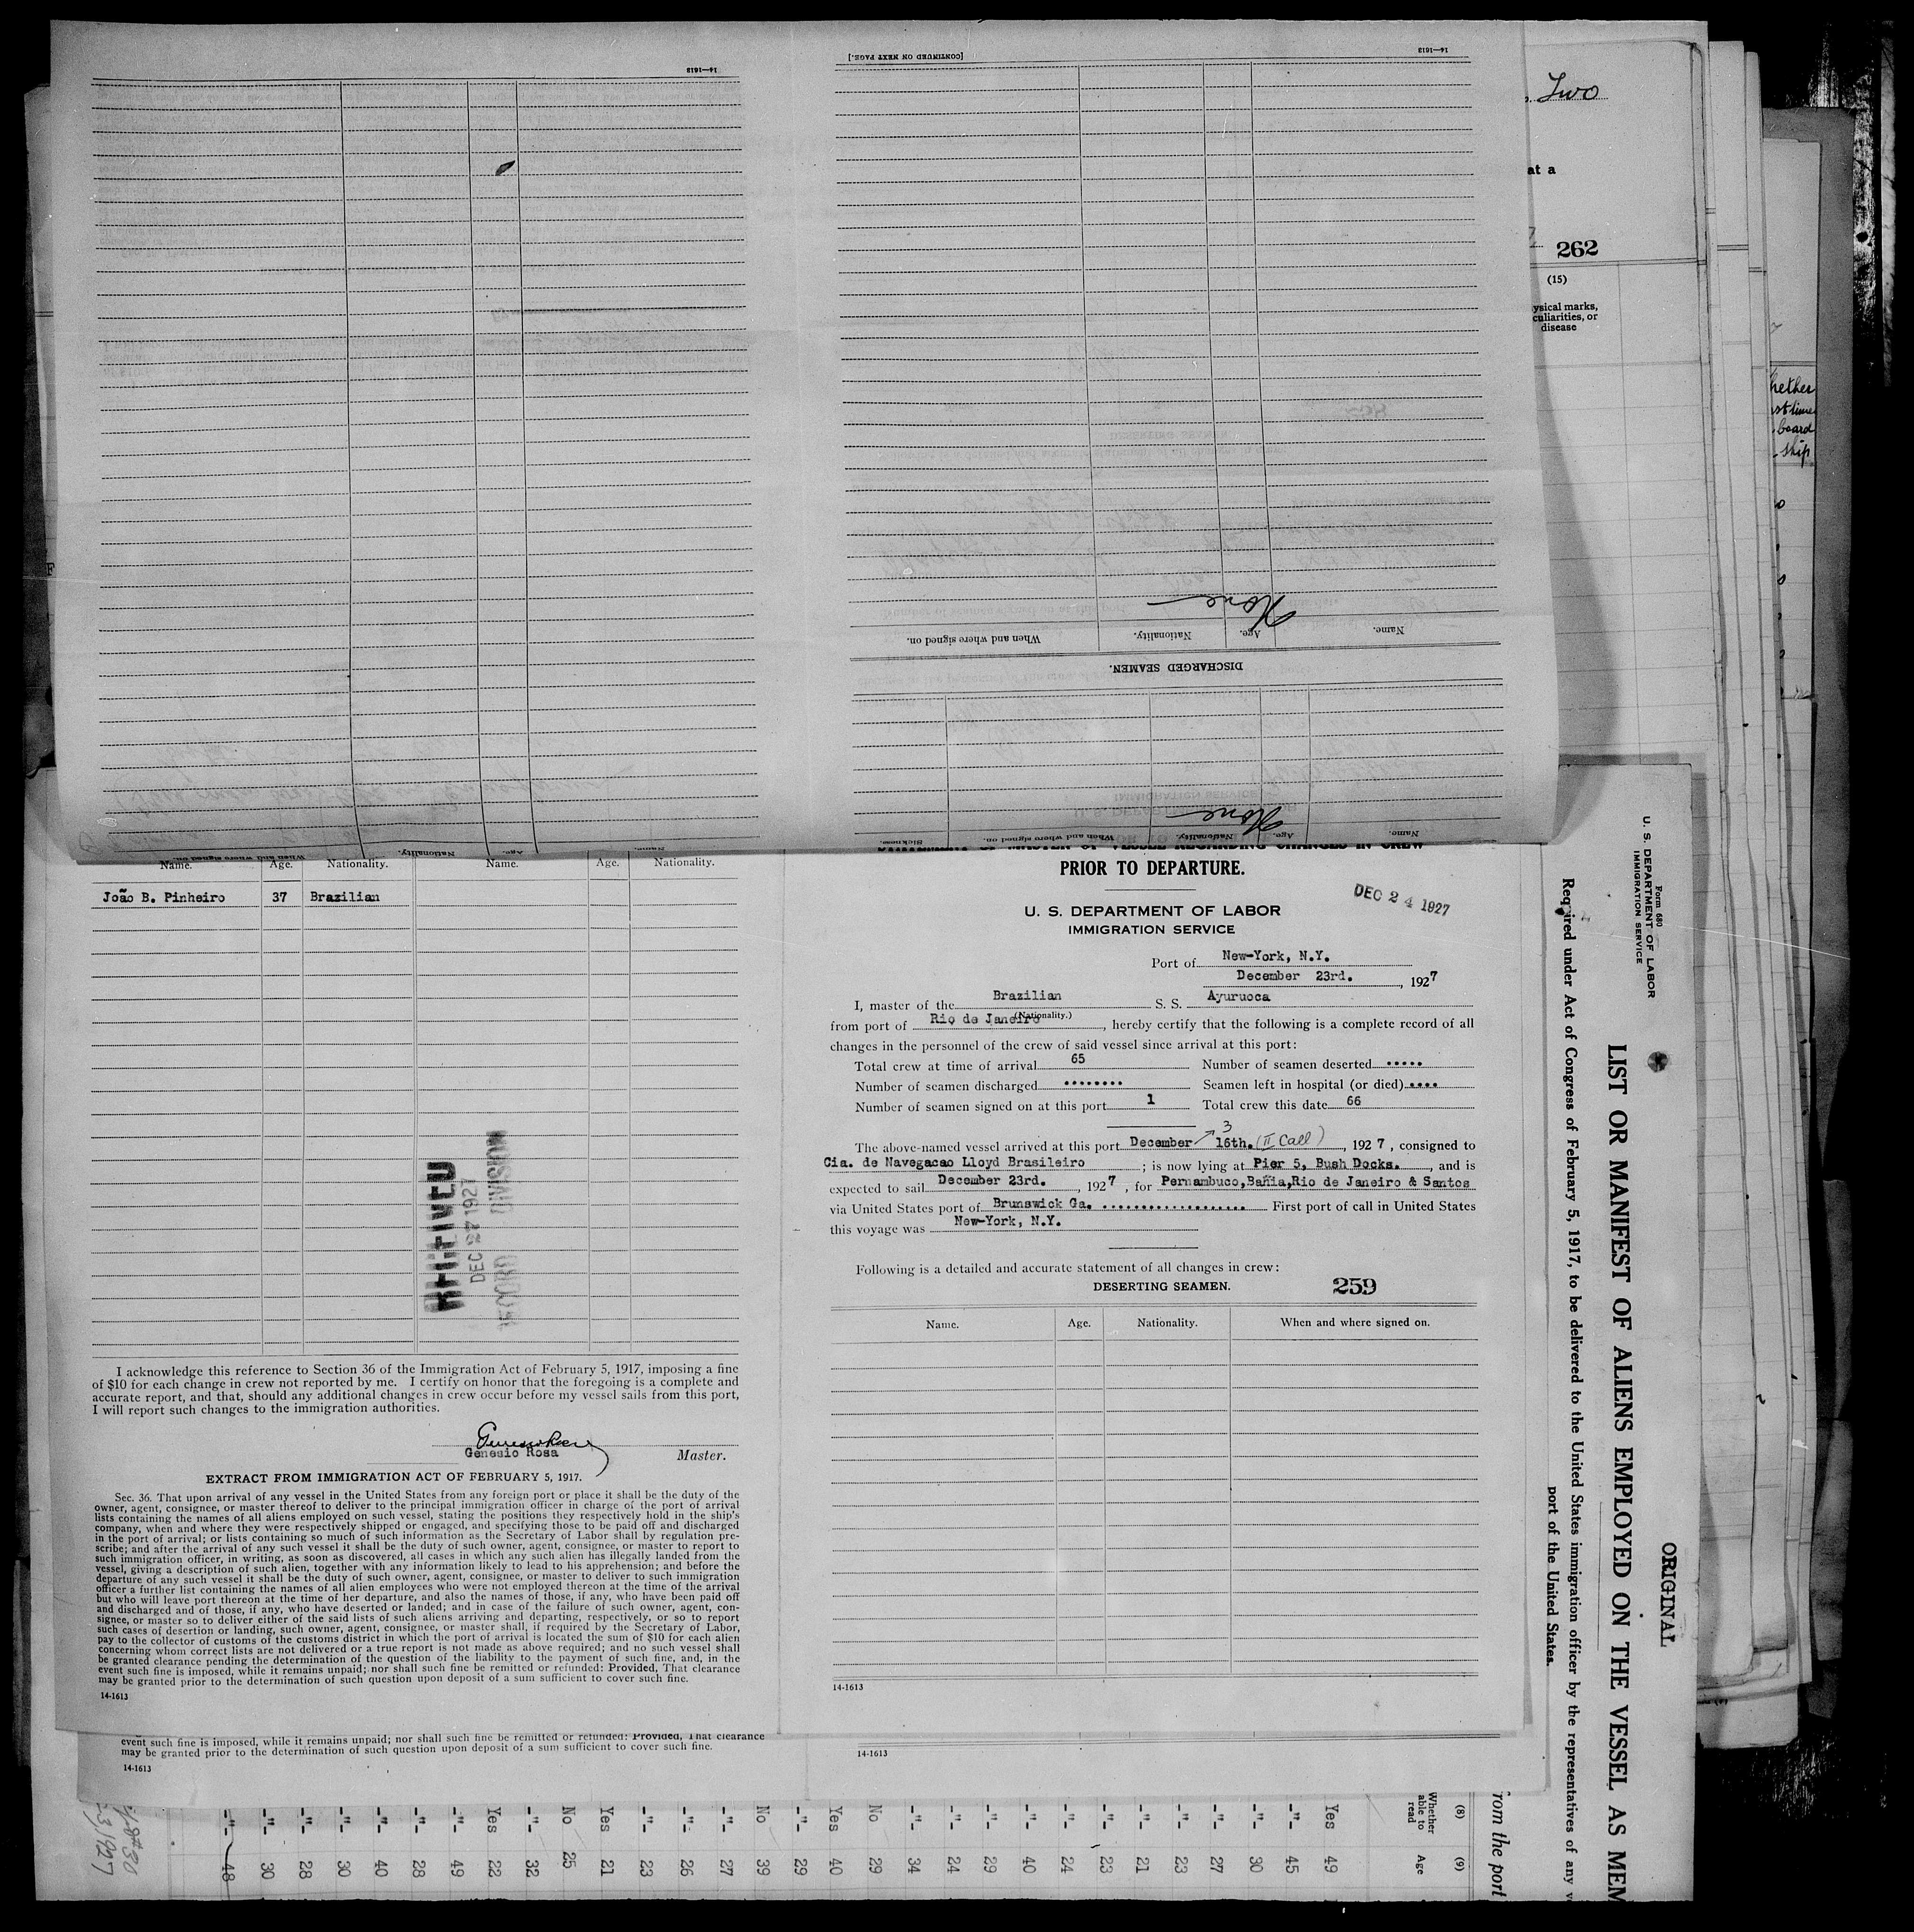 [CONTINUED ON NEXT PAGE.]
14—1613
14—1613
Two
at a
262
(15)
ysical marks,
culiarities, or
disease
hether
st time
board
ship
None
Name. Age. Nationality. When and where signed on.
DISCHARGED SEAMEN.
None
Name. Age. Nationality. When and where signed on. Sickness.
Name. Age. Nationality. When and where signed on.
Name. Age. Nationality. Name. Age. Nationality.
João B. Pinheiro 37 Brazilian
DEC 27 1927
DIVISION
I acknowledge this reference to Section 36 of the Immigration Act of February 5, 1917, imposing a fine
of $10 for each change in crew not reported by me. I certify on honor that the foregoing is a complete and
accurate report, and that, should any additional changes in crew occur before my vessel sails from this port,
I will report such changes to the immigration authorities.
Genesio Rosa Master.
EXTRACT FROM IMMIGRATION ACT OF FEBRUARY 5, 1917.
Sec. 36. That upon arrival of any vessel in the United States from any foreign port or place it shall be the duty of the
owner, agent, consignee, or master thereof to deliver to the principal immigration officer in charge of the port of arrival
lists containing the names of all aliens employed on such vessel, stating the positions they respectively hold in the ship's
company, when and where they were respectively shipped or engaged, and specifying those to be paid off and discharged
in the port of arrival; or lists containing so much of such information as the Secretary of Labor shall by regulation pre-
scribe; and after the arrival of any such vessel it shall be the duty of such owner, agent, consignee, or master to report to
such immigration officer, in writing, as soon as discovered, all cases in which any such alien has illegally landed from the
vessel, giving a description of such alien, together with any information likely to lead to his apprehension; and before the
departure of any such vessel it shall be the duty of such owner, agent, consignee, or master to deliver to such immigration
officer a further list containing the names of all alien employees who were not employed thereon at the time of the arrival
but who will leave port thereon at the time of her departure, and also the names of those, if any, who have been paid off
and discharged and of those, if any, who have deserted or landed; and in case of the failure of such owner, agent, con-
signee, or master so to deliver either of the said lists of such aliens arriving and departing, respectively, or so to report
such cases of desertion or landing, such owner, agent, consignee, or master shall, if required by the Secretary of Labor,
pay to the collector of customs of the customs district in which the port of arrival is located the sum of $10 for each alien
concerning whom correct lists are not delivered or a true report is not made as above required; and no such vessel shall
be granted clearance pending the determination of the question of the liability to the payment of such fine, and, in the
event such fine is imposed, while it remains unpaid; nor shall such fine be remitted or refunded: Provided, That clearance
may be granted prior to the determination of such question upon deposit of a sum sufficient to cover such fine.
14-1613
MASTER OF VESSEL REGARDING CHANGES IN CREW
PRIOR TO DEPARTURE.
DEC 24 1927
U. S. DEPARTMENT OF LABOR
IMMIGRATION SERVICE
Port of New-York, N.Y.
December 23rd. , 1927
I, master of the Brazilian S. S. Ayuruoca
(Nationality.)
from port of Rio de Janeiro , hereby certify that the following is a complete record of all
changes in the personnel of the crew of said vessel since arrival at this port:
Total crew at time of arrival 65 Number of seamen deserted .....
Number of seamen discharged ........ Seamen left in hospital (or died) ....
Number of seamen signed on at this port 1 Total crew this date 66
3
The above-named vessel arrived at this port December 16th. (II Call) , 1927 , consigned to
Cia. de Navegacao Lloyd Brasileiro ; is now lying at Pier 5, Bush Docks. , and is
expected to sail December 23rd. , 1927 , for Pernambuco,Bahia,Rio de Janeiro & Santos
via United States port of Brunswick Ga. .................... First port of call in United States
this voyage was New-York, N.Y.
Following is a detailed and accurate statement of all changes in crew:
DESERTING SEAMEN. 259
Name. Age. Nationality. When and where signed on.
14-1613
event such fine is imposed, while it remains unpaid; nor shall such fine be remitted or refunded: Provided, That clearance
may be granted prior to the determination of such question upon deposit of a sum sufficient to cover such fine.
14-1613
14-1613
Form 680
U. S. DEPARTMENT OF LABOR
IMMIGRATION SERVICE
ORIGINAL
LIST OR MANIFEST OF ALIENS EMPLOYED ON THE VESSEL AS MEM
Required under Act of Congress of February 5, 1917, to be delivered to the United States immigration officer by the representatives of any v
port of the United States.
from the port
(8) (9)
Whether able to read Age
Yes 49
-"- 45
-"- 30
-"- 27
-"- 23
-"- 21
-"- 23
-"- 24
-"- 40
-"- 29
-"- 24
-"- 34
No 29
Yes 40
-"- 29
No 39
-"- 27
-"- 26
-"- 23
Yes 21
No 25
-"- 32
Yes 22
-"- 49
-"- 28
-"- 40
-"- 30
-"- 28
-"- 30
-"- 48